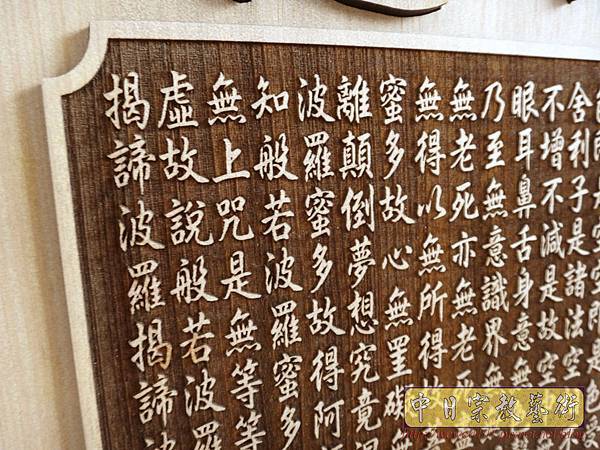 舍利子是諸法空
不增不減是故空
眼耳鼻舌身意無
乃至無意識界無
無老死亦無老死
無得以無所得故
蜜多故心無罣礙無
離顛倒夢想究竟涅
波羅蜜多故得阿
知般若波羅蜜多
無上咒是無等等
虛故說般若波羅
揭諦波羅揭諦波
中日宗教藝術